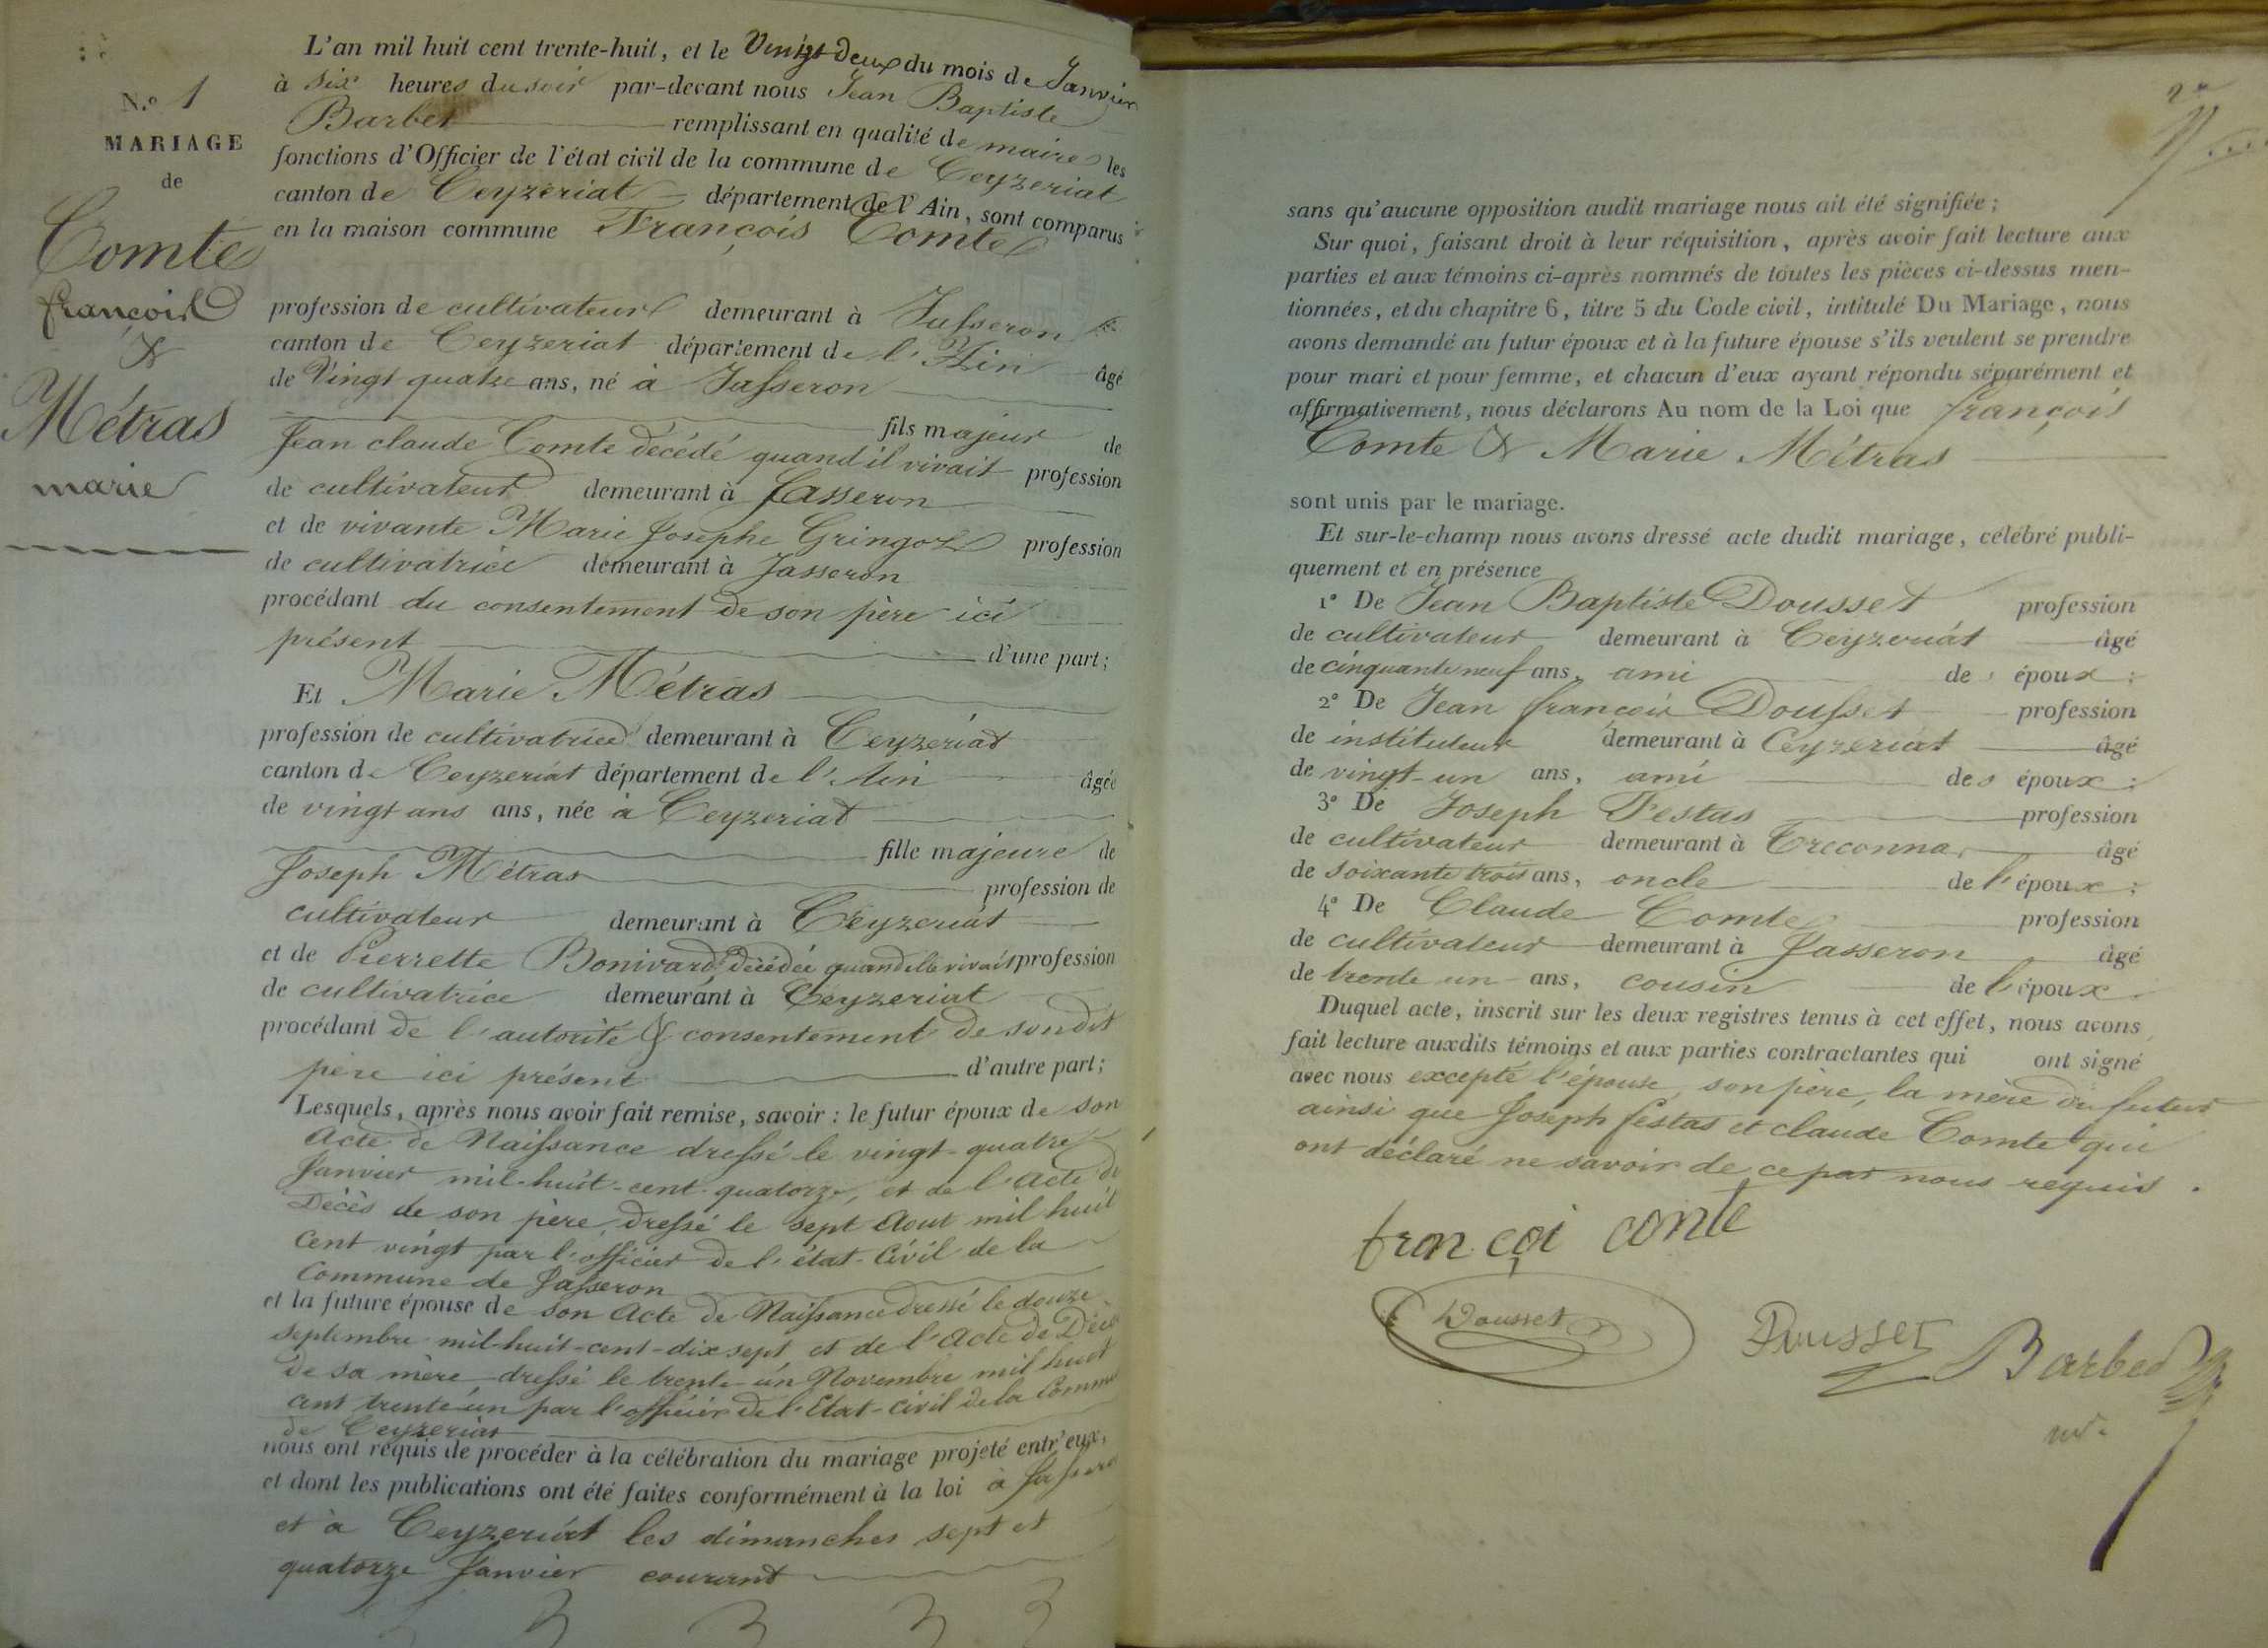 N.o 1
MARIAGE
de
Comte
françois
&
Métras
marie
L'an mil huit cent trente-huit, et le Vingt deux du mois de Janvier
à six heures du soir par-devant nous Jean Baptiste
Barbet remplissant en qualité de maire les
fonctions d'Officier de l'état civil de la commune de Ceyzeriat
canton de Ceyzériat département de l'Ain, sont comparus
en la maison commune François Comte
profession de cultivateur demeurant à Jasseron
canton de Ceyzeriat département de l'Ain âgé
de Vingt quatre ans, né à Jasseron
fils majeur de
Jean claude Comte décédé quand il vivait profession
de cultivateur demeurant à Jasseron
et de vivante Marie Josephe Gringoz profession
de cultivatrice demeurant à Jasseron
procédant du consentement de son père ici
présent d'une part;
Et Marie Métras
profession de cultivatrice demeurant à Ceyzeriat
canton de Ceyzeriat département de l'Ain âgée
de vingt ans ans, née à Ceyzeriat
fille majeure de
Joseph Métras profession de
cultivateur demeurant à Ceyzeriat
et de Pierrette Bonivard, décédée quand elle vivait profession
de cultivatrice demeurant à Ceyzeriat
procédant de l'autorité & consentement de sondit
père ici présent d'autre part;
Lesquels, après nous avoir fait remise, savoir: le futur époux de son
Acte de Naissance dressé le vingt-quatre
Janvier mil-huit-cent-quatorze, et de l'acte de
Décès de son père, dressé le sept Aout mil huit
cent vingt par l'officier de l'état-Civil de la
Commune de Jasseron
et la future épouse de son Acte de Naissance dressé le douze
septembre mil-huit-cent-dix sept et de l'acte de Décès
de sa mère dressé le trente-un Novembre mil huit
cent trente un par l'officier de l'Etat-Civil de la Commune
de Ceyzeriat
nous ont requis de procéder à la célébration du mariage projeté entr'eux,
et dont les publications ont été faites conformément à la loi à Jasseron
et à Ceyzeriat les dimanches sept et
quatorze Janvier courant
sans qu'aucune opposition audit mariage nous ait été signifiée;
Sur quoi, faisant droit à leur réquisition, après avoir fait lecture aux
parties et aux témoins ci-après nommés de toutes les pièces ci-dessus men-
tionnées, et du chapitre 6, titre 5 du Code civil, intitulé Du Mariage, nous
avons demandé au futur époux et à la future épouse s'ils veulent se prendre
pour mari et pour femme, et chacun d'eux ayant répondu séparément et
affirmativement, nous déclarons Au nom de la Loi que françois
Comte & Marie Métras
sont unis par le mariage.
Et sur-le-champ nous avons dressé acte dudit mariage, célébré publi-
quement et en présence
1° De Jean Baptiste Dousset profession
de cultivateur demeurant à Ceyzeriat âgé
de cinquante neuf ans, ami des époux;
2° De Jean françois Dousset profession
de instituteur demeurant à Ceyzeriat âgé
de vingt-un ans, ami des époux;
3° De Joseph Festas profession
de cultivateur demeurant à Treconnas âgé
de soixante trois ans, oncle de l'époux;
4° De Claude Comte profession
de cultivateur demeurant à Jasseron âgé
de trente un ans, cousin de l'époux
Duquel acte, inscrit sur les deux registres tenus à cet effet, nous avons
fait lecture auxdits témoins et aux parties contractantes qui ont signé
avec nous excepté l'épouse, son père, la mère du futur
ainsi que Joseph festas et claude Comte qui
ont déclaré ne savoir de ce par nous requis.
françoi conte
Dousset
Dousset
Barbet